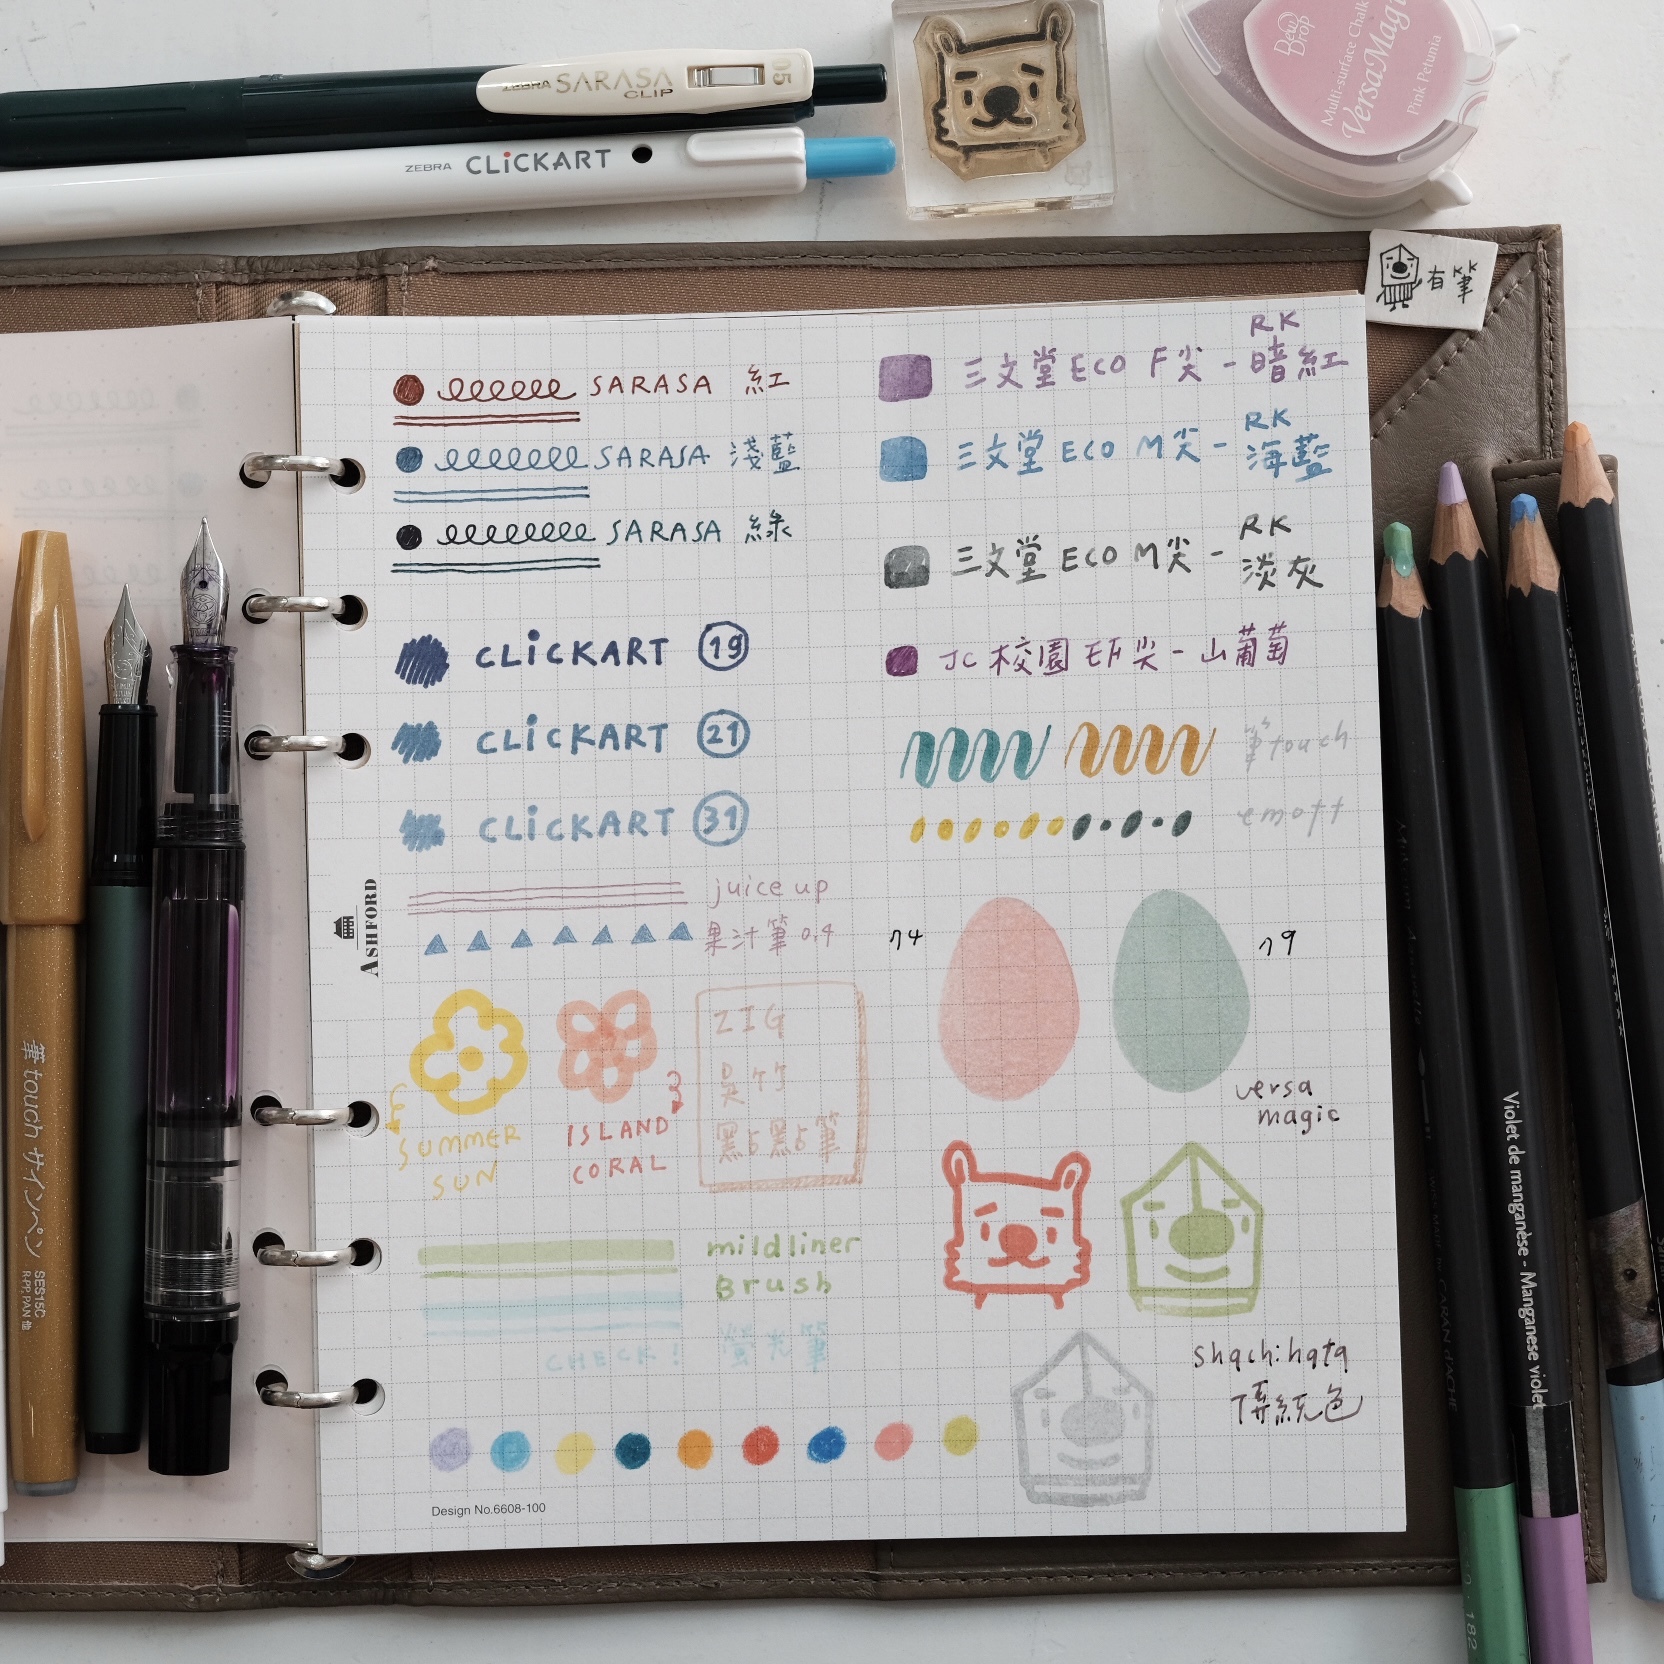 ZEBRA SARASA CLIP 05
ZEBRA CLiCKART
Dew Drop
Multi-surface Chalk
VersaMagic
Pink Petunia
有筆
SARASA 紅
SARASA 淺藍
SARASA 綠
CLiCKART 19
CLiCKART 21
CLiCKART 31
juice up
果汁筆 0.4
SUMMER
SUN
ISLAND
CORAL
ZIG
吳竹
點點筆
mildliner
Brush
CHECK! 螢光筆
Design No.6608-100
ASHFORD
RK
三文堂 ECO F尖-暗紅
RK
三文堂 ECO M尖-海藍
RK
三文堂 ECO M尖-淡灰
JC 校園 EF尖-山葡萄
筆touch
emott
74
79
versa
magic
shachihata
筆touchサインペン
SES15C
R-PP.PAN 他
Violet de manganèse - Manganese violet
182